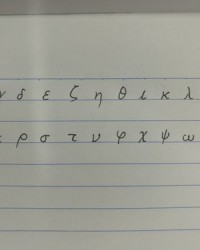 γ δ ε ζ η θ ι κ λ
ρ σ τ υ φ χ ψ ω